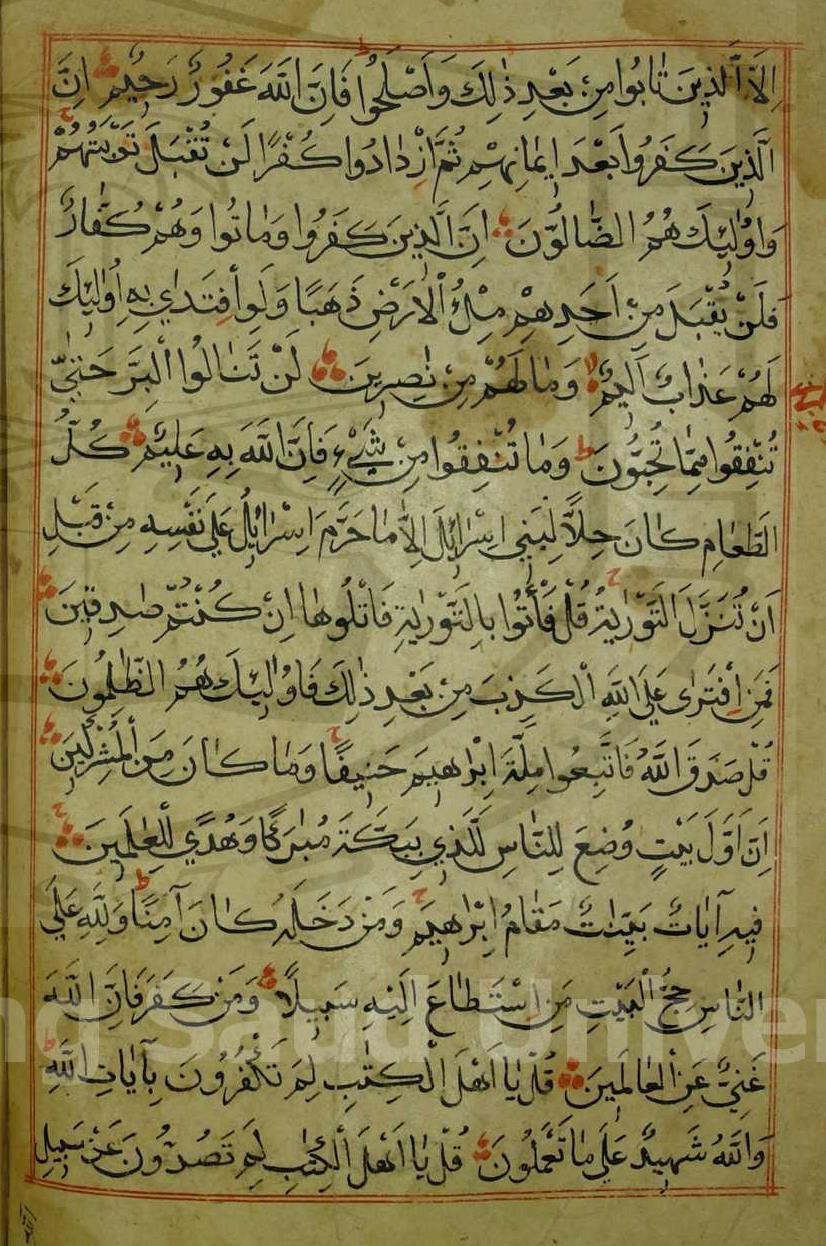 اِلَّا الَّذِينَ تَابُوا مِنْ بَعْدِ ذٰلِكَ وَاَصْلَحُوا فَاِنَّ اللّٰهَ غَفُورٌ رَحِيمٌ اِنَّ
الَّذِينَ كَفَرُوا بَعْدَ اِيمَانِهِمْ ثُمَّ ازْدَادُوا كُفْرًا لَنْ تُقْبَلَ تَوْبَتُهُمْ
وَاُولٰئِكَ هُمُ الضَّالُّونَ اِنَّ الَّذِينَ كَفَرُوا وَمَاتُوا وَهُمْ كُفَّارٌ
فَلَنْ يُقْبَلَ مِنْ اَحَدِهِمْ مِلْءُ الْاَرْضِ ذَهَبًا وَلَوِ افْتَدٰى بِهِ اُولٰئِكَ
لَهُمْ عَذَابٌ اَلِيمٌ وَمَا لَهُمْ مِنْ نٰصِرِينَ لَنْ تَنَالُوا الْبِرَّ حَتّٰى
تُنْفِقُوا مِمَّا تُحِبُّونَ وَمَا تُنْفِقُوا مِنْ شَيْءٍ فَاِنَّ اللّٰهَ بِهِ عَلِيمٌ كُلُّ
الطَّعَامِ كَانَ حِلًّا لِبَنِي اِسْرَائِلَ اِلَّا مَا حَرَّمَ اِسْرَائِلُ عَلٰى نَفْسِهِ مِنْ قَبْلِ
اَنْ تُنَزَّلَ التَّوْرٰيةُ قُلْ فَأْتُوا بِالتَّوْرٰيةِ فَاتْلُوهَا اِنْ كُنْتُمْ صٰدِقِينَ
فَمَنِ افْتَرٰى عَلَى اللّٰهِ الْكَذِبَ مِنْ بَعْدِ ذٰلِكَ فَاُولٰئِكَ هُمُ الظّٰلِمُونَ
قُلْ صَدَقَ اللّٰهُ فَاتَّبِعُوا مِلَّةَ اِبْرٰهِيمَ حَنِيفًا وَمَا كَانَ مِنَ الْمُشْرِكِينَ
اِنَّ اَوَّلَ بَيْتٍ وُضِعَ لِلنَّاسِ لَلَّذِي بِبَكَّةَ مُبٰرَكًا وَهُدًى لِلْعٰلَمِينَ
فِيهِ آيَاتٌ بَيِّنٰتٌ مَقَامُ اِبْرٰهِيمَ وَمَنْ دَخَلَهُ كَانَ آمِنًا وَلِلّٰهِ عَلَى
النَّاسِ حِجُّ الْبَيْتِ مَنِ اسْتَطَاعَ اِلَيْهِ سَبِيلًا وَمَنْ كَفَرَ فَاِنَّ اللّٰهَ
غَنِيٌّ عَنِ الْعَالَمِينَ قُلْ يَا اَهْلَ الْكِتٰبِ لِمَ تَكْفُرُونَ بِآيَاتِ اللّٰهِ
وَاللّٰهُ شَهِيدٌ عَلٰى مَا تَعْمَلُونَ قُلْ يَا اَهْلَ الْكِتٰبِ لِمَ تَصُدُّونَ عَنْ سَبِيلِ
اللّٰه